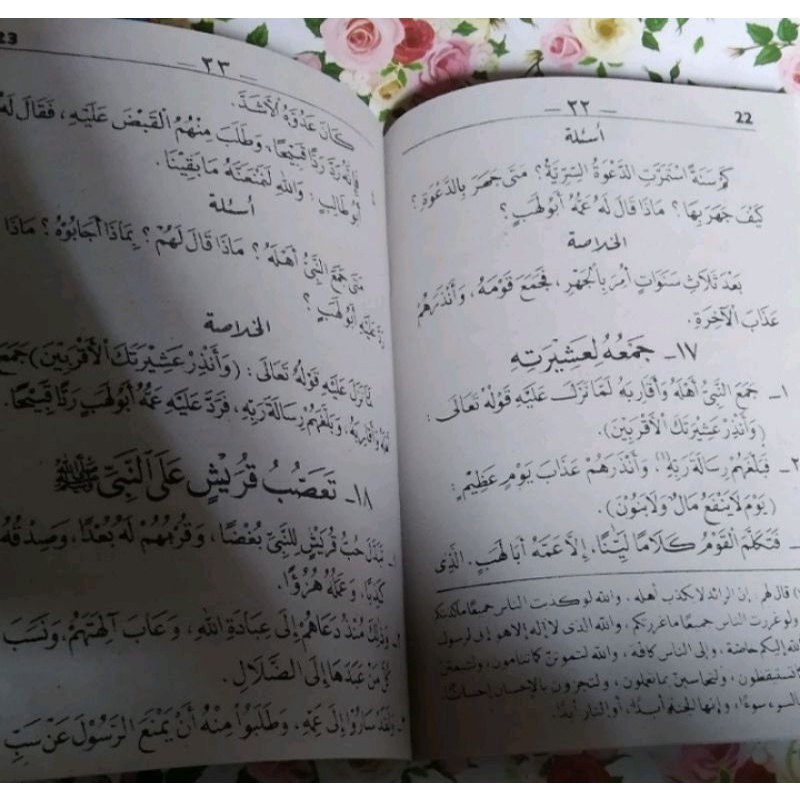 22
— ٢٢ —
أسئلة
كَمْ سَنَةً اسْتَمَرَّتِ الدَّعْوَةُ السِّرِّيَّةُ؟ مَتَى جَهَرَ بِالدَّعْوَةِ؟
كَيْفَ جَهَرَ بِهَا؟ مَاذَا قَالَ لَهُ عَمُّهُ أَبُو لَهَبٍ؟
الخلاصة
بَعْدَ ثَلَاثِ سَنَوَاتٍ أُمِرَ بِالْجَهْرِ، فَجَمَعَ قَوْمَهُ، وَأَنْذَرَهُمْ
عَذَابَ الْآخِرَةِ.
١٧- جَمْعُهُ لِعَشِيرَتِهِ
١- جَمَعَ النَّبِيُّ أَهْلَهُ وَأَقَارِبَهُ لَمَّا نَزَلَ عَلَيْهِ قَوْلُهُ تَعَالَى:
(وَأَنْذِرْ عَشِيرَتَكَ الْأَقْرَبِينَ).
٢- فَبَلَّغَهُمْ رِسَالَةَ رَبِّهِ، وَأَنْذَرَهُمْ عَذَابَ يَوْمٍ عَظِيمٍ:
(يَوْمَ لَا يَنْفَعُ مَالٌ وَلَا بَنُونَ).
- فَتَكَلَّمَ الْقَوْمُ كَلَامًا لَيِّنًا، إِلَّا عَمَّهُ أَبَا لَهَبٍ. الَّذِي
) قال لهم: إن الرائد لا يكذب أهله، والله لو كذبت الناس جميعًا ما كذبتكم
ولو غررت الناس جميعًا ما غررتكم، والله الذي لا إله إلا هو إني لرسول
الله إليكم خاصة، وإلى الناس كافة، والله لتموتن كما تنامون، ولتبعثن
كما تستيقظون، ولتحاسبن بما تعملون، ولتجزون بالإحسان إحسانًا.
وبالسوء سوءًا، وإنها لجنة أبدًا، أو النار أبدًا.
23
— ٢٣ —
كَانَ عَدُوَّهُ الْأَشَدَّ.
فَإِنَّهُ رَدَّ رَدًّا قَبِيحًا، وَطَلَبَ مِنْهُمُ الْقَبْضَ عَلَيْهِ، فَقَالَ لَهُ
أَبُو طَالِبٍ: وَاللهِ لَنَمْنَعَنَّهُ مَا بَقِينَا.
أسئلة
مَتَى جَمَعَ النَّبِيُّ أَهْلَهُ؟ مَاذَا قَالَ لَهُمْ؟ بِمَاذَا أَجَابُوهُ؟ مَاذَا
رَدَّ عَلَيْهِ أَبُو لَهَبٍ؟
الخلاصة
لَمَّا نَزَلَ عَلَيْهِ قَوْلُهُ تَعَالَى: (وَأَنْذِرْ عَشِيرَتَكَ الْأَقْرَبِينَ) جَمَعَ
أَهْلَهُ وَأَقَارِبَهُ، وَبَلَّغَهُمْ رِسَالَةَ رَبِّهِ، فَرَدَّ عَلَيْهِ عَمُّهُ أَبُو لَهَبٍ رَدًّا قَبِيحًا.
١٨- تَعَصُّبُ قُرَيْشٍ عَلَى النَّبِيِّ ﷺ
١- تَبَدَّلَ حُبُّ قُرَيْشٍ لِلنَّبِيِّ بُغْضًا، وَقُرْبُهُمْ لَهُ بُعْدًا، وَصِدْقُهُ
كَذِبًا، وَعَمَلُهُ هُزُؤًا.
٢- وَذَلِكَ مُنْذُ دَعَاهُمْ إِلَى عِبَادَةِ اللهِ، وَعَابَ آلِهَتَهُمْ، وَنَسَبَ
كُلَّ مَنْ عَبَدَهَا إِلَى الضَّلَالِ.
٣- وَلَقَدْ سَارُوا إِلَى عَمِّهِ، وَطَلَبُوا مِنْهُ أَنْ يَمْنَعَ الرَّسُولَ عَنْ سَبِّ